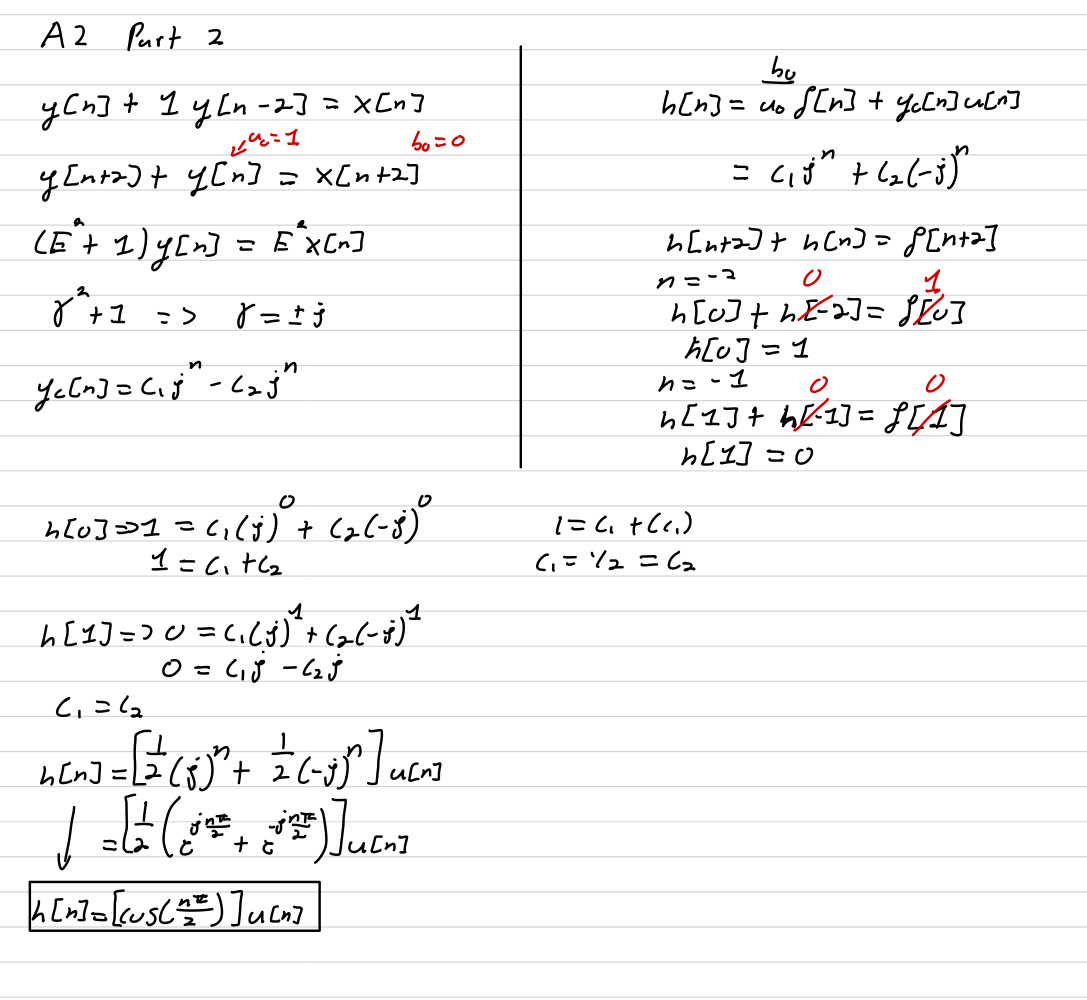 A2 Part 2
y[n] + 1 y[n-2] = x[n]
a₀=1 b₀=0
y[n+2] + y[n] = x[n+2]
(E² + 1)y[n] = E²x[n]
γ²+1 => γ = ±j
y꜀[n] = c₁jⁿ - c₂jⁿ
h[n] = b₀/a₀ δ[n] + y꜀[n]u[n]
= c₁jⁿ + c₂(-j)ⁿ
h[n+2] + h[n] = δ[n+2]
n = -2 0 1
h[0] + h[-2] = δ[0]
h[0] = 1
n = -1 0 0
h[1] + h[-1] = δ[1]
h[1] = 0
h[0] => 1 = c₁(j)⁰ + c₂(-j)⁰
1 = c₁ + c₂
1 = c₁ + (c₁)
c₁ = 1/2 = c₂
h[1] => 0 = c₁(j)¹ + c₂(-j)¹
0 = c₁j - c₂j
c₁ = c₂
h[n] = [1/2 (j)ⁿ + 1/2 (-j)ⁿ] u[n]
↓ = [1/2 (e^(j nπ/2) + e^(-j nπ/2))] u[n]
h[n] = [cos(nπ/2)] u[n]